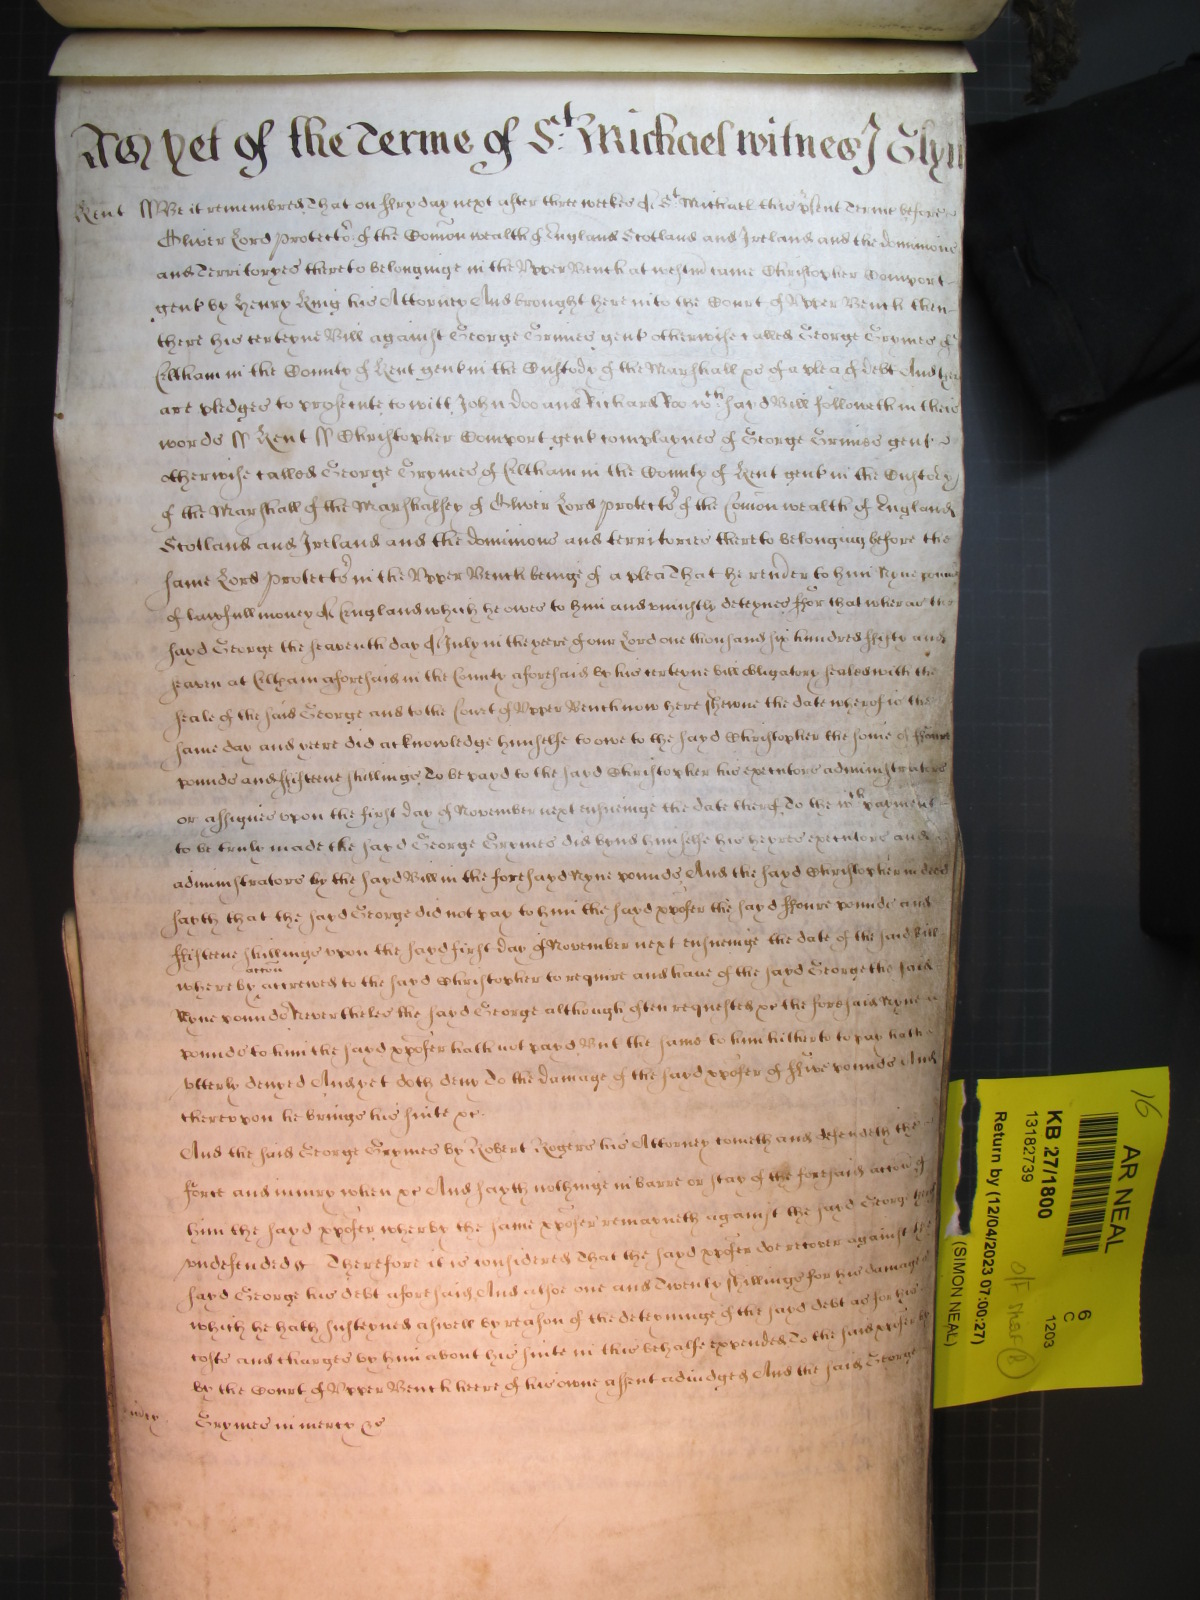 As yet of the Terme of St. Michael witnes J Glyn
Kent ss Be it remembred That on ffryday next after three weekes of St. Michaell this psent Terme before
Oliver Lord Protector of the Comon wealth of England Scotland and Ireland and the dominions
and Territoryes thereto belonginge in the Upper Bench at westm came Christopher Comport
gent by Henry King his Attorney And brought here into the Court of Upper Bench then
there his certeyne Bill against George Grimes gent otherwise called George Grymes of
Eltham in the County of Kent gent in the Custody of the Marshall &c of a plea of debt And they
are pledges to prosecute to witt John Doo and Richard Roo wch sayd Bill followeth in theis
words ss Kent ss Christopher Comport gent complaynes of George Grimes gent
otherwise called George Grymes of Eltham in the County of Kent gent in the Custody
of the Marshall of the Marshalsey of Oliver Lord protector of the Comon wealth of England
Scotland and Ireland and the dominions and territories thereto belonging before the
same Lord Protector in the Upper Bench beinge of a plea That he render to him Nyne pounds
of lawfull money of England which he owes to him and uniustly deteynes ffor that whereas the
sayd George the seaventh day of July in the yeere of our Lord one thousand six hundred fifty and
seaven at Eltham aforesaid in the County aforesaid by his certeyne bill obligatory sealed with the
seale of the said George and to the Court of Upper Bench now here shewne the date wherof is the
same day and yeere did acknowledge himselfe to owe to the sayd Christopher the some of ffoure
pounds and ffifteene shillings To be payd to the sayd Christopher his executors administrators
or assignes upon the first day of November next ensueinge the date therof To the wch payment
to be truly made the sayd George Grymes did bynd himselfe his heyres executors and
administrators by the sayd Bill in the foresayd Nyne pounds And the sayd Christopher in deed
sayth that the sayd George did not pay to him the sayd xpofer the sayd ffoure pounds and
ffifteene shillings upon the sayd first day of November next ensueinge the date of the said bill
whereby accon accrewed to the sayd Christopher to require and have of the sayd George the said
Nyne pounds Nevertheles the sayd George although often requested &c the foresaid Nyne
pounds to him the sayd xpofer hath not payd But the same to him hitherto to pay hath
utterly denyed And yet doth deny To the damage of the sayd xpofer of ffive pounds And
thereupon he brings his suite &c.
And the said George Grymes by Robert Rogers his Attorney cometh and defendeth the
force and iniury when &c And sayth nothinge in barre or stay of the foresaid accon of
him the sayd xpofer wherby the same xpofer remayneth against the sayd George
undefended &c Therefore it is considered That the sayd xpofer doe recover against the
sayd George his debt aforesaid And alsoe one and Twenty shillings for his damages
which he hath susteyned aswell by reason of the deteyninge of the sayd debt as for his
costs and charges by him about his suite in this behalfe expended To the said xpofer
by the Court of Upper Bench heere of his owne assent adiudged And the said George
Grymes in mercy &c
16
AR NEAL
KB 27/1800
13182739
Return by (12/04/2023 07:00:27)
(SIMON NEAL)
6
C
1203